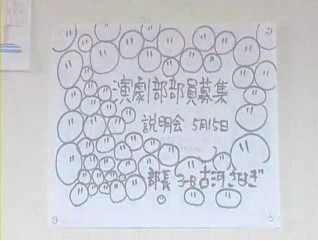 演劇部部員募集
説明会 5月15日
部長 3-B 古河 なぎさ